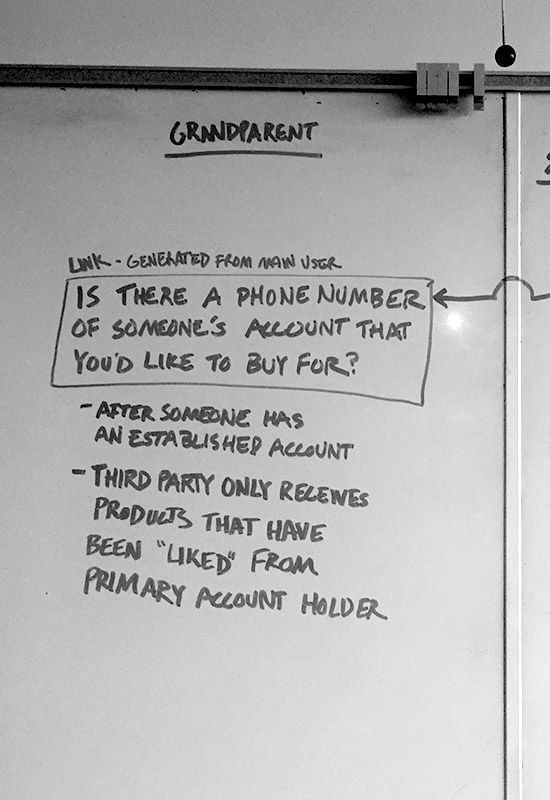 GRANDPARENT
LINK - GENERATED FROM MAIN USER
IS THERE A PHONE NUMBER
OF SOMEONE'S ACCOUNT THAT
YOU'D LIKE TO BUY FOR?
- AFTER SOMEONE HAS
AN ESTABLISHED ACCOUNT
- THIRD PARTY ONLY RECEIVES
PRODUCTS THAT HAVE
BEEN "LIKED" FROM
PRIMARY ACCOUNT HOLDER